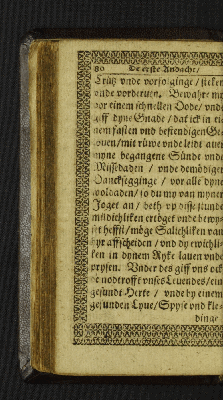 80 De erste Andacht/
vnde vorderuen. Bewahr my
vor einem schnellen Dode/ vnde
giff dyne Gnade/ dat ick in
nem fasten vnd bestendigen
louen/ mit rüwe vnde leidt auer
myne begangene Sünde vnde
Missdaden/ vnde demödiger
Dancksegginge/ vor alle dyne
woldaden/ so du my van myner
Jöget an/ beth vp disse stunde
mildichliken ertöget vnde bewy-
set heffst/ möge Salichliken van
hyr affscheiden/ vnd dy ewichli-
ken in dynem Ryke lauen vnde
prysen. Vnder des giff vns ock
de nodtrofft vnses Leuendes/ ein
gesundt Herte/ vnde by einem
gesunden Lyue/ Spyse vnd Kle-
dinge